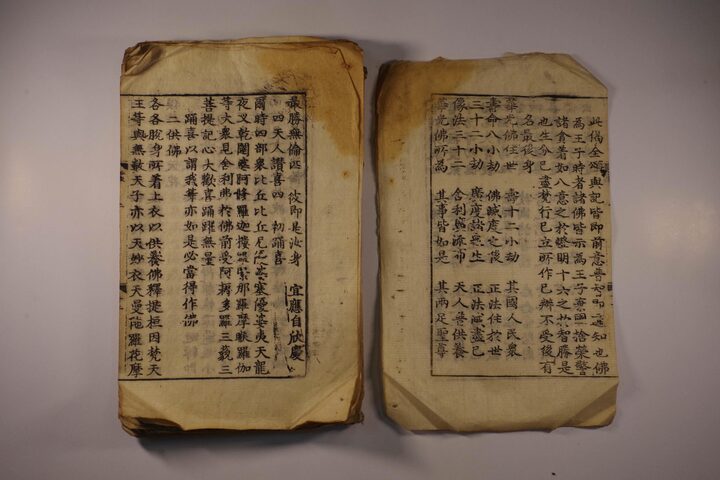 此偈全頌與記皆即前意普知即遍知也佛
為王子時者諸佛皆示為王子棄國捨榮警
諸貪著如八意之於燈明十六之於智勝是
也生分已盡梵行已立所作已辦不受後有
名最後身
華光佛住世 壽十二小劫 其國人民衆
壽命八小劫 佛滅度之後 正法住於世
三十二小劫 廣度諸衆生 正法滅盡已
像法三十二 舍利廣流布 天人普供養
華光佛所為 其事皆如是 其兩足聖尊
最勝無倫匹 彼即是汝身 宜應自欣慶
四天人讚喜四 初踊喜
爾時四部衆比丘比丘尼優婆塞優婆夷天龍
夜叉乾闥婆阿修羅迦樓羅緊那羅摩睺羅伽
等大衆見舍利弗於佛前受阿耨多羅三藐三
菩提記心大歡喜踊躍無量
踊喜以謂我等亦如是必當得作佛
二供佛
各各脫身所著上衣以供養佛釋提桓因梵天
王等與無數天子亦以天妙衣天曼陁羅花摩